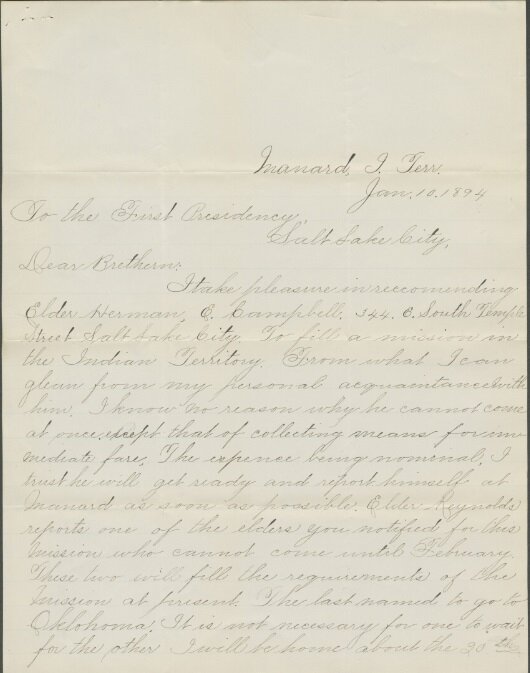 Manard, I. Terr.
Jan. 10, 1894
To the First Presidency,
Salt Lake City,
Dear Brethern:
I take pleasure in reccomending
Elder Herman, C. Campbell. 344. E. South Temple
Street Salt Lake City. To fill a mission in
the Indian Territory. From what I can
glean from my personal acquaintance with
him. I know no reason why he cannot come
at once, except that of collecting means for im-
mediate fare. The expence being nominal, I
trust he will get ready and report himself at
Manard as soon as possible. Elder Reynolds
reports one of the elders you notified for this
Mission who cannot come until February.
These two will fill the requirements of the
Mission at present. The last named to go to
Oklohoma. It is not necessary for one to wait
for the other I will be home about the 20th